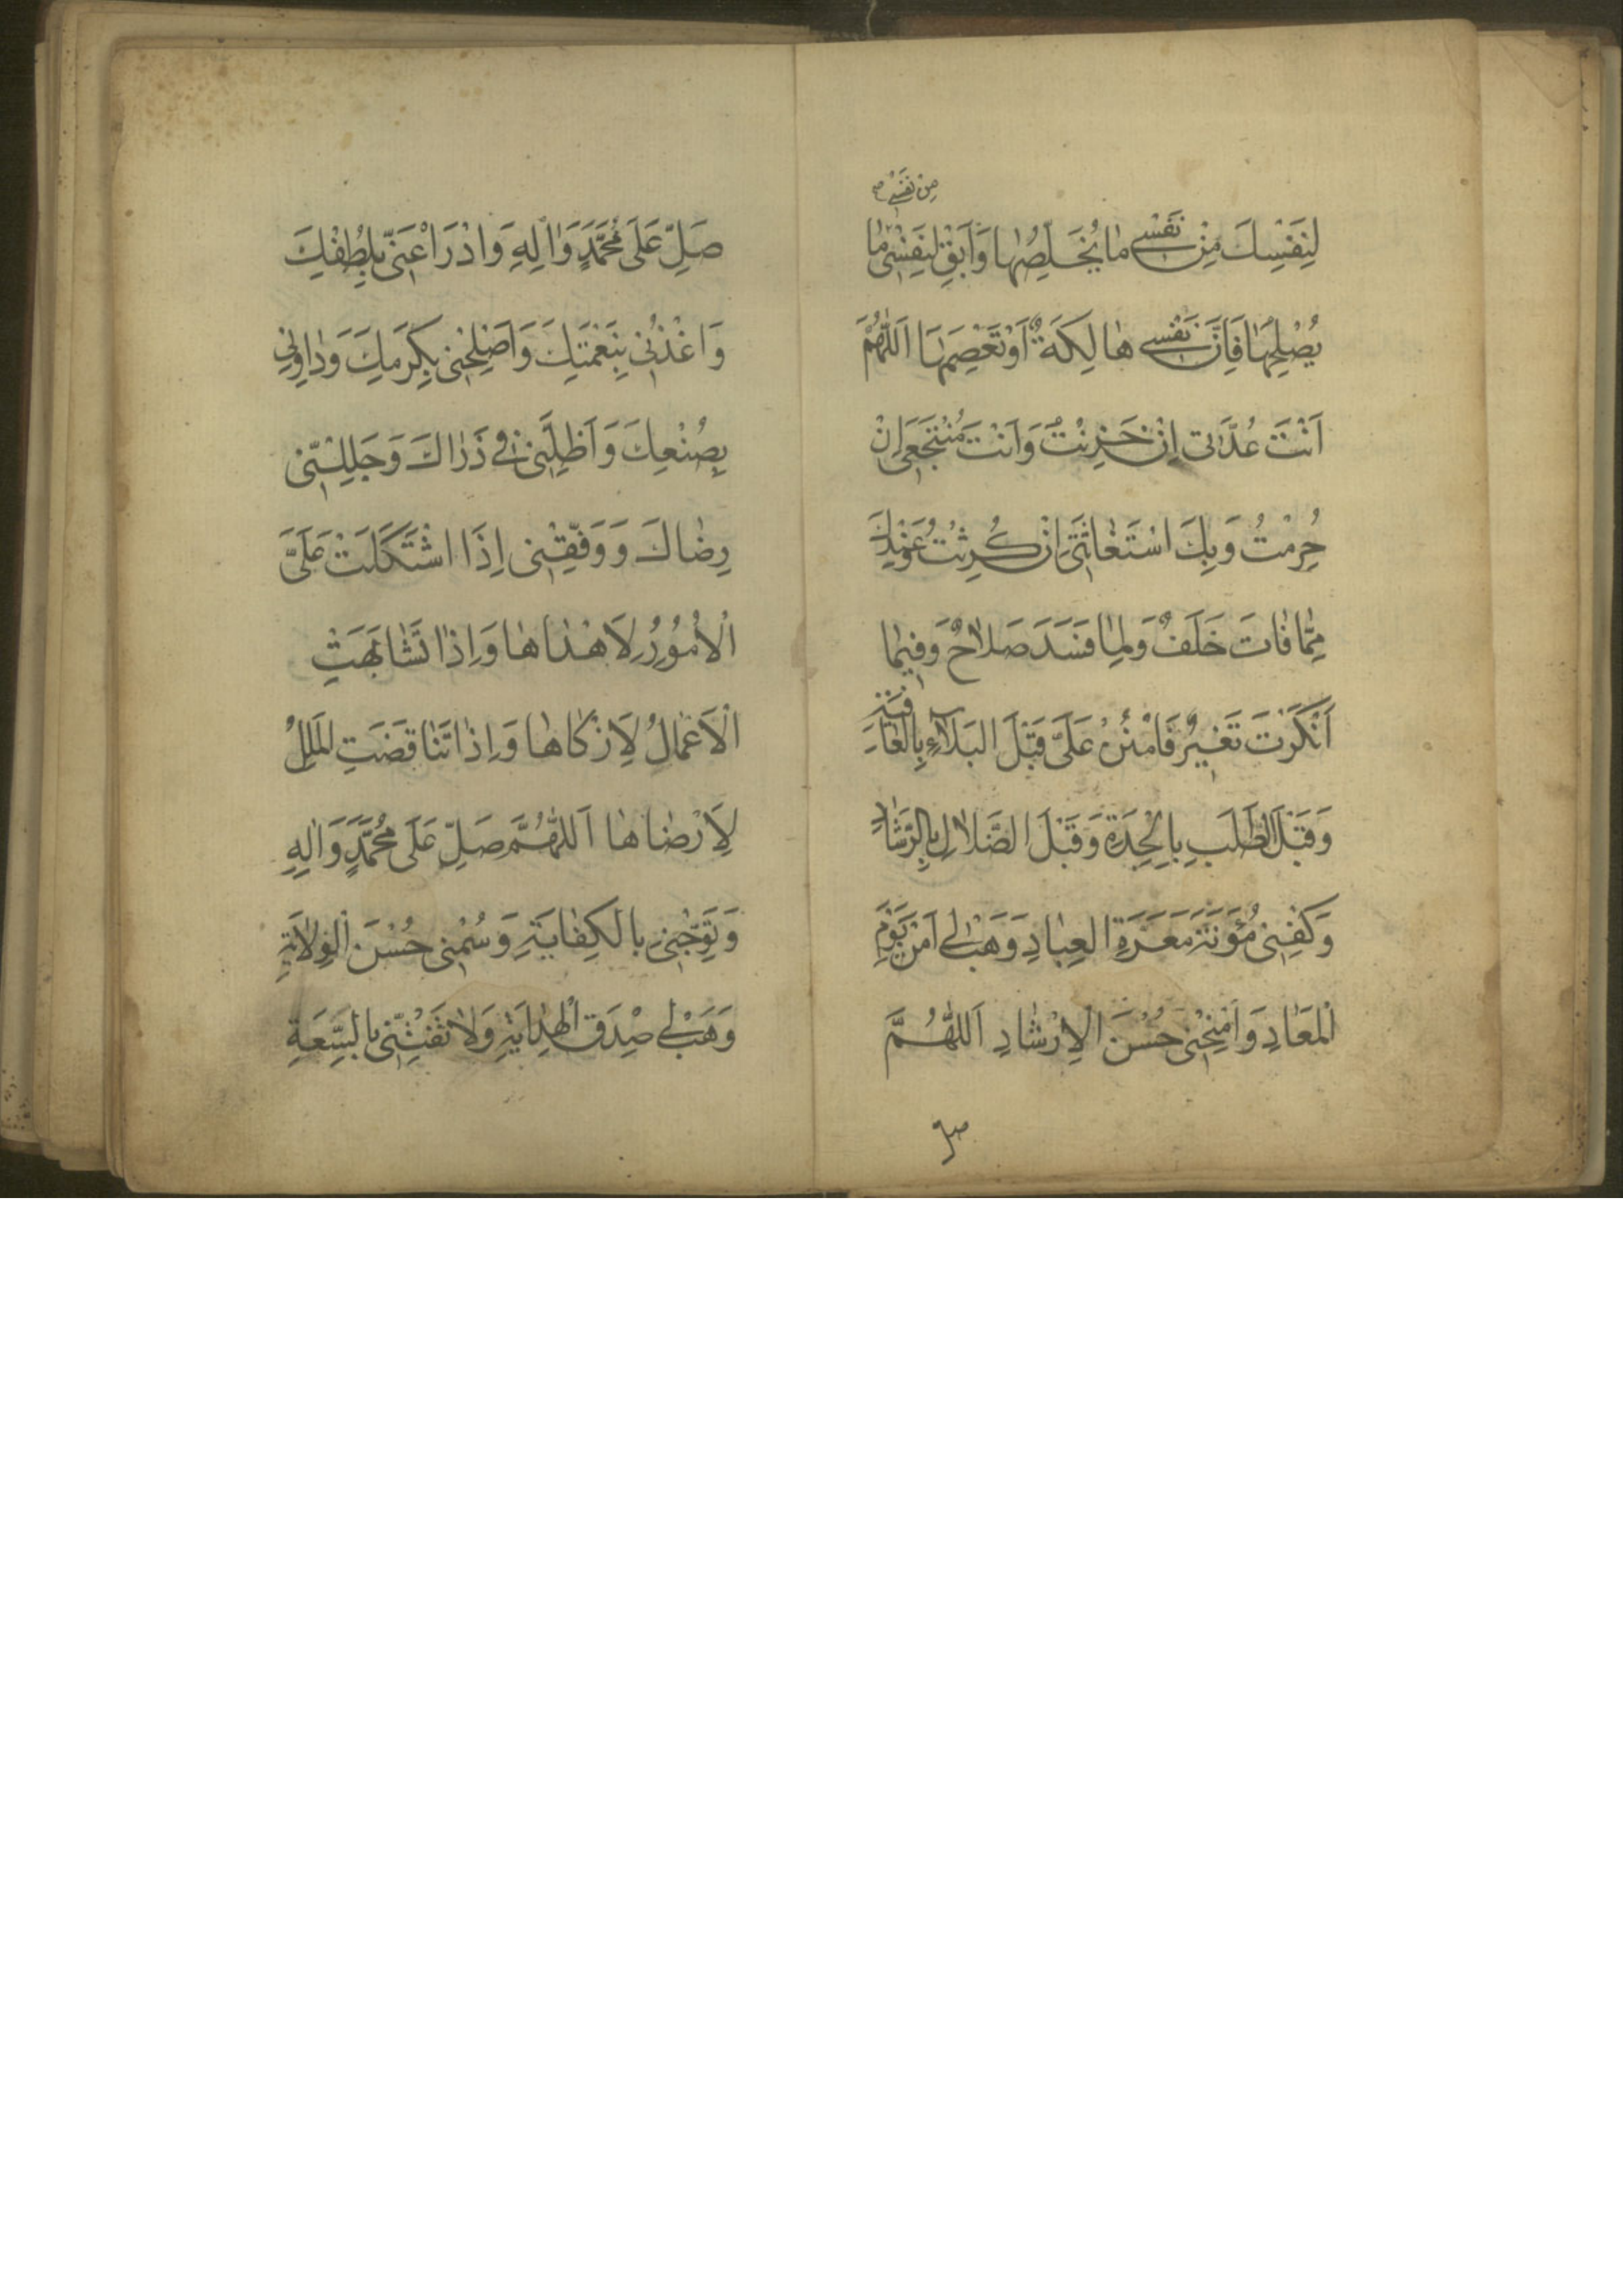 مِنْ نَفْسِی
لِنَفْسِكَ مِنْ نَفْسِی مٰا یُخَلِّصُهٰا وَاَبْقِ لِنَفْسِی مٰا
یُصْلِحُهٰا فَاِنَّ نَفْسِی هٰالِكَةٌ اَوْ تَعْصِمَهٰا اَللّٰهُمَّ
اَنْتَ عُدَّتی اِنْ حَزِنْتُ وَاَنْتَ مُنْتَجَعی اِنْ
حُرِمْتُ وَبِكَ اسْتَغٰاثَتی اِنْ كُرِثْتُ وَعِنْدَكَ
مِمّٰا فٰاتَ خَلَفٌ وَلِمٰا فَسَدَ صَلاٰحٌ وَفیمٰا
اَنْكَرْتَ تَغْییرٌ فَامْنُنْ عَلَیَّ قَبْلَ الْبَلاٰءِ بِالْعٰافِیَةِ
وَقَبْلَ الطَّلَبِ بِالْجِدَةِ وَقَبْلَ الضَّلاٰلِ بِالرَّشٰادِ
وَكْفِنی مُؤْنَةَ مَعَرَّةِ الْعِبٰادِ وَهَبْ لی اَمْنَ یَوْمِ
الْمَعٰادِ وَامْنِحْنی حُسْنَ الْاِرْشٰادِ اَللّٰهُمَّ
صَلِّ عَلَی مُحَمَّدٍ وَاٰلِهِ وَادْرَاْ عَنّی بِلُطْفِكَ
وَاغْذُنی بِنِعْمَتِكَ وَاَصْلِحْنی بِكَرَمِكَ وَدٰاوِنی
بِصُنْعِكَ وَاَظِلَّنی فی ذَرٰاكَ وَجَلِّلْنی
رِضٰاكَ وَوَفِّقْنی اِذَا اشْتَكَلَتْ عَلَیَّ
الْاُمُوُرُ لِاَهْدٰاهٰا وَاِذٰا تَشٰابَهَتِ
الْاَعْمٰالُ لِاَزْكٰاهٰا وَاِذٰا تَنٰاقَضَتِ الْمِلَلُ
لِاَرْضٰاهٰا اَللّٰهُمَّ صَلِّ عَلَی مُحَمَّدٍ وَاٰلِهِ
وَتَوِّجْنی بِالْكِفٰایَةِ وَسُمْنی حُسْنَ الْوِلاٰیَةِ
وَهَبْ لی صِدْقَ الْهِدٰایَةِ وَلاٰ تَفْتِنّی بِالسِّعَةِ